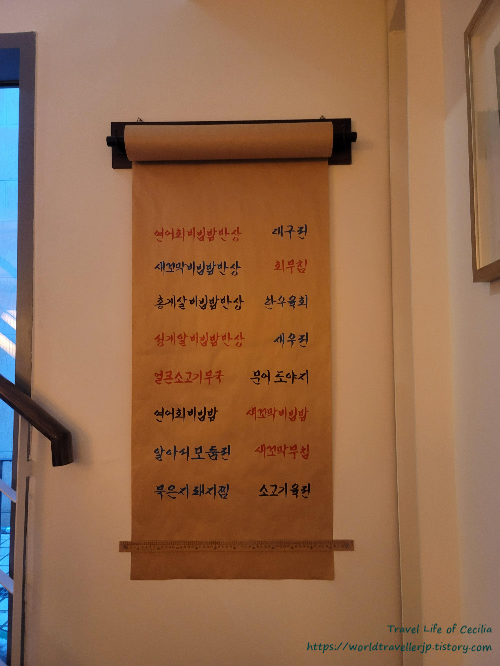 연어회비빔밥반상 대구전
새꼬막비빔밥반상 회무침
홍게살비빔밥반상 한우육회
성게알비빔밥반상 새우전
얼큰소고기무국 문어 도야지
연어회비빔밥 새꼬막비빔밥
알아서모듬전 새꼬막무침
묵은지돼지찜 소고기육전
Travel Life of Cecilia
https://worldtravellerjp.tistory.com